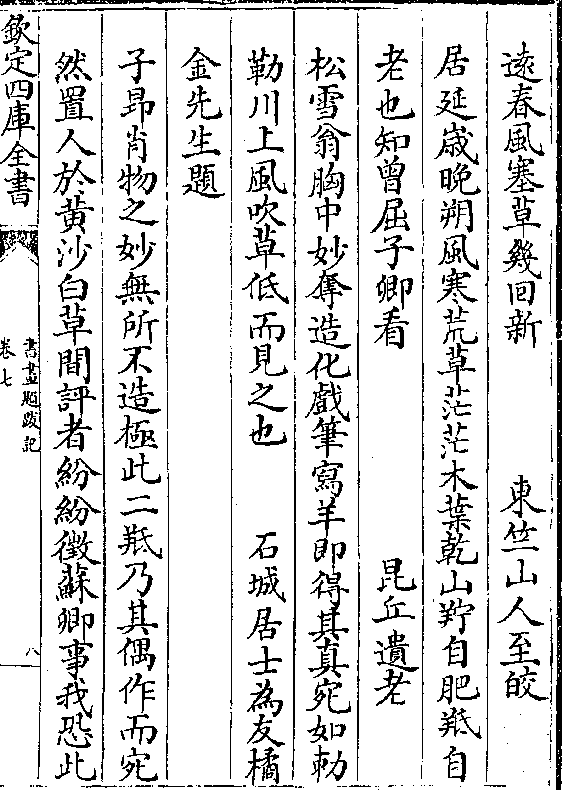 逺春風塞草幾回新　東竺山人至皎
居延嵗晚朔風寒荒草茫茫木葉乾山羜自肥羝自
老也知曽屈子卿看　昆丘遺老
松雪翁胸中妙奪造化戲筆寫羊即得其真宛如勅
勒川上風吹草低而見之也　石城居士為友橘
金先生題
子昻肖物之妙無所不造極此二羝乃其偶作而宛
然置人於黄沙白草間評者紛紛徴蘇卿事我恐此
欽定四庫全書
書畫題跋記
卷七
八